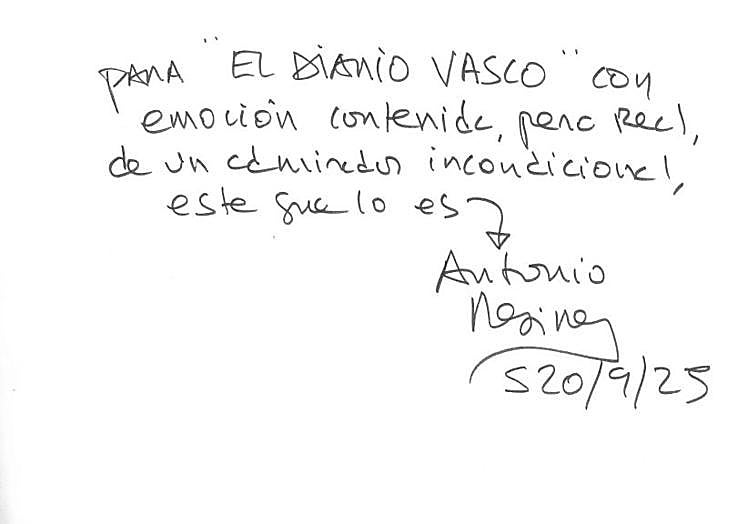 para "EL DIARIO VASCO" con
emoción contenida, pero real,
de un admirador incondicional,
este que lo es
Antonio
S20/9/25